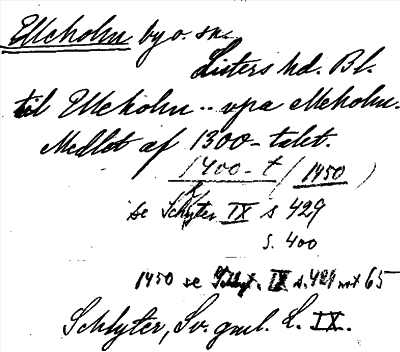 Elleholm by o. sn.
Listers hd. Bl.
til Elleholm .. upa Elleholm.
Medlet af 1300-talet.
1400-t (1450)
se Schlyter IX s 429
s. 400
1450 se Schlyt. IX s. 429 not 65
Schlyter, Sv. gml. L. IX.